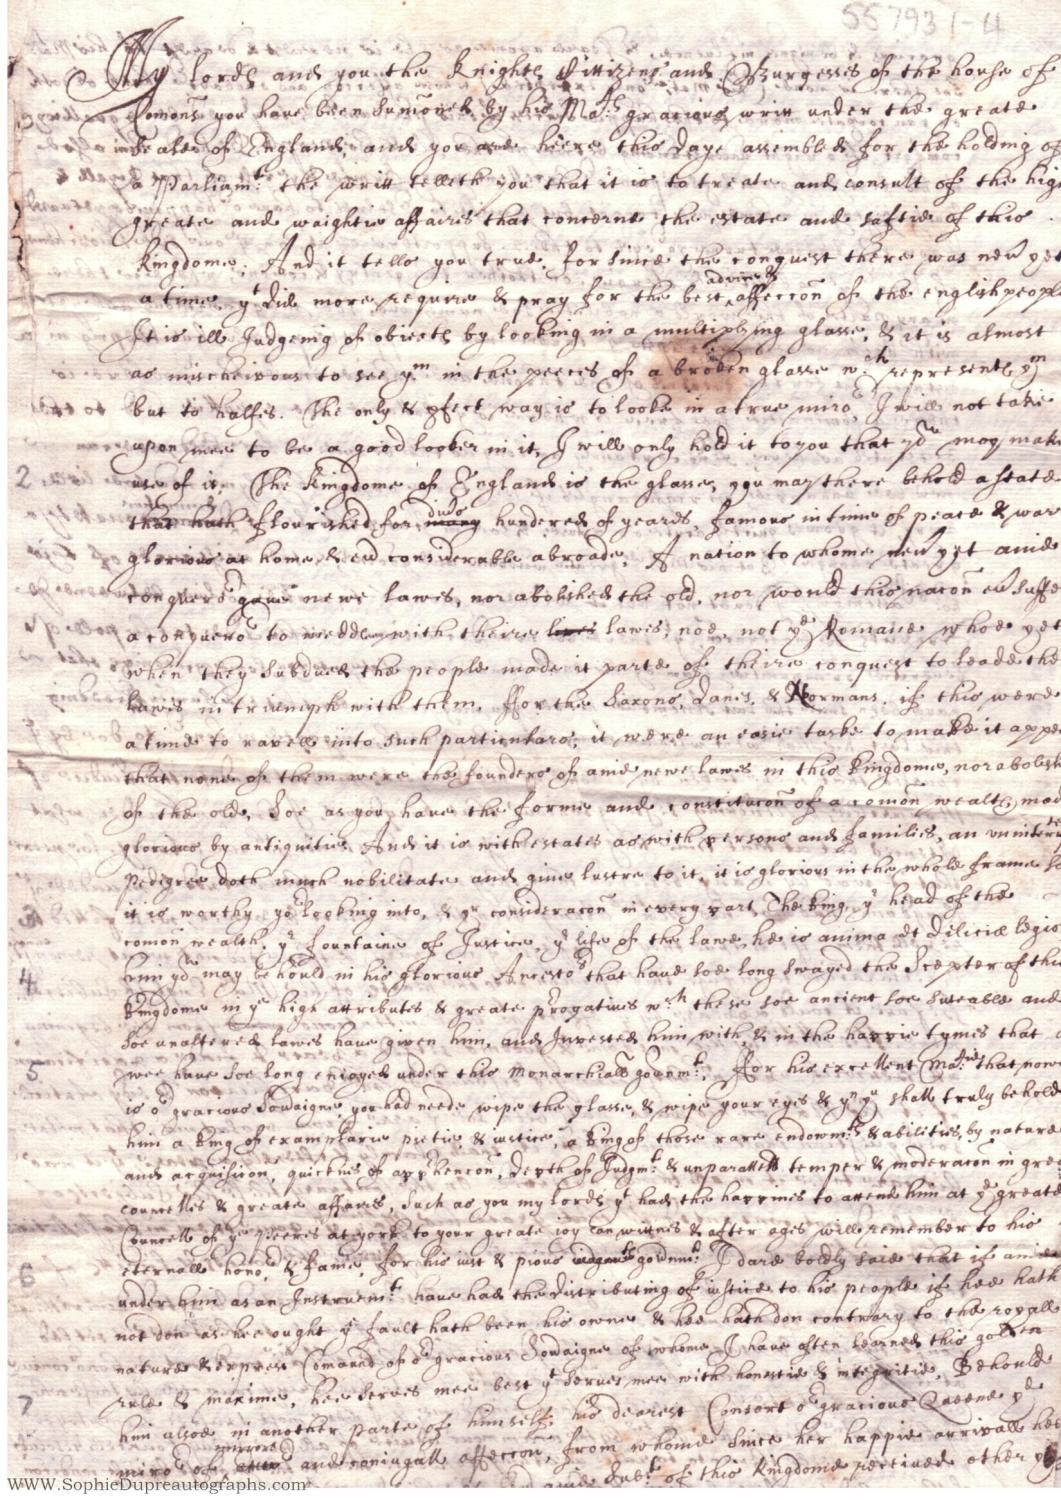 55793 1-4
My lords and you the Knights Cittizens and Burgesses of the house of
Comons you have been Sumoned by his Mats gracious writt under the greate
Seale of England, and you are heere this daye assembled for the holding of
a Parliamt. the writt telleth you that it is to treate and consult of the high
greate and waightie affaires that concerne the estate and saftie of this
kingdome, And it tells you true, for since the conquest there was nev yet
advice &
a time, yt did more require & pray for the best affeccon of the english people
It is ill Judgeing of obiects by looking in a multiplying glasse, & it is almost
as mischeivous to see ym in the peeces of a broken glasse wch represents ym
but to halfes. The only & pfect way is to looke in a true miror, I will not take
upon mee to be a good looker in it, I will only hold it to you that you may make
2 use of it. The kingdome of England is the glasse, you may there behold a state
divrs
that hath flourished for many hundered of yeares, famous in time of peace & war
glorious at home & ev considerable abroade, A nation to whome nev yet anie
conqueror gave newe lawes, nor abolished the old, nor would this nacon ev suffer
a conqueror to meddle with theire lives lawes; noe, not ye Romans whoe yet
when they Subdued the people made it parte of theire conquest to leade the
lawes in triumph with them. ffor the Saxons, Danes, & Normans, if this were
a time to ravell into such particulars, it were an easie taske to make it appe
that none of them were the founders of anie newe lawes in this kingdome, nor abolish
of the old, Soe as you have the forme and constitucon of a comon wealth mad
glorious by antiquitie, And it is with estates as with persons and families, an uninter
pedigree doth much nobilitate and give lustre to it, it is glorious in the whole frame so
3 it is worthy yor looking into, & yr consideracon in every part, The King, ye head of the
comon wealth, ye fountaine of Justice, ye life of the lawe, he is anima et diliciæ legis
4 him you may behould in his glorious Ancestors that have soe long swayed the Scepter of this
kingdome in ye high attributes & greate prerogatives wch these soe ancient soe suteable and
soe unaltered lawes have given him, and Invested him with, & in the happie tymes that
5 wee have soe long enioyed under this monarchiall govnmt, ffor his excellent Matie that now
is or gracious Sovaigne, you had neede wipe the glasse, & wipe your eyes & yn you shall truly behold
him a king of examplarie pietie & iustice, a king of those rare endowmts & abilities, by nature
and acquisiion, quicknes of apphencon, depth of Judgmt & unparalleld temper & moderacon in grea
councells & greate affaires, Such as you my lords yt had the happines to attend him at ye greate
Councell of ye peeres at york to your greate ioy can wittnes & after ages will remember to his
6 eternall honor, & fame, for his iust & pious govnmt. I dare boldly saie that if anie
under him as an Instrumt have had the distributing of iustice to his people if hee hath
not don as hee ought ye fault hath been his owne & hee hath don contrary to the royall
nature & expresse Comaund of or gracious Sovaigne of whome I have often learned this golden
rule & maxime, hee serves mee best yt serves mee with honestie & integritie, Behould
7 him alsoe in another parte of himself, his dearest Consort or gracious Queene ye
miror of and coniugall affeccon, from whome since her happie arrivall her
anie subt. of this kingdome received other
www.SophieDupreautographs.com